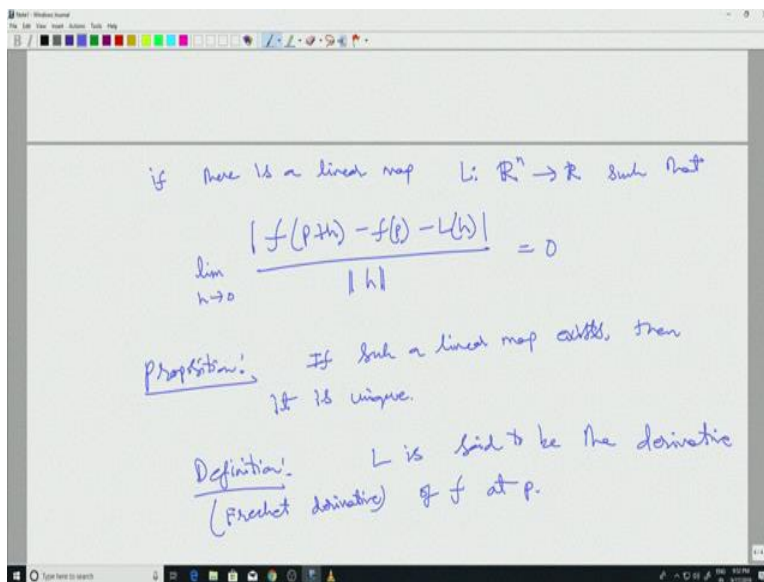 Note1 - Windows Journal
File Edit View Insert Actions Tools Help
if there is a linear map L: ℝⁿ → ℝ such that
lim h→0 |f(p+h) - f(p) - L(h)| / ‖h‖ = 0
Proposition: If such a linear map exists, then
it is unique.
Definition: L is said to be the derivative
(Frechet derivative) of f at p.
Type here to search